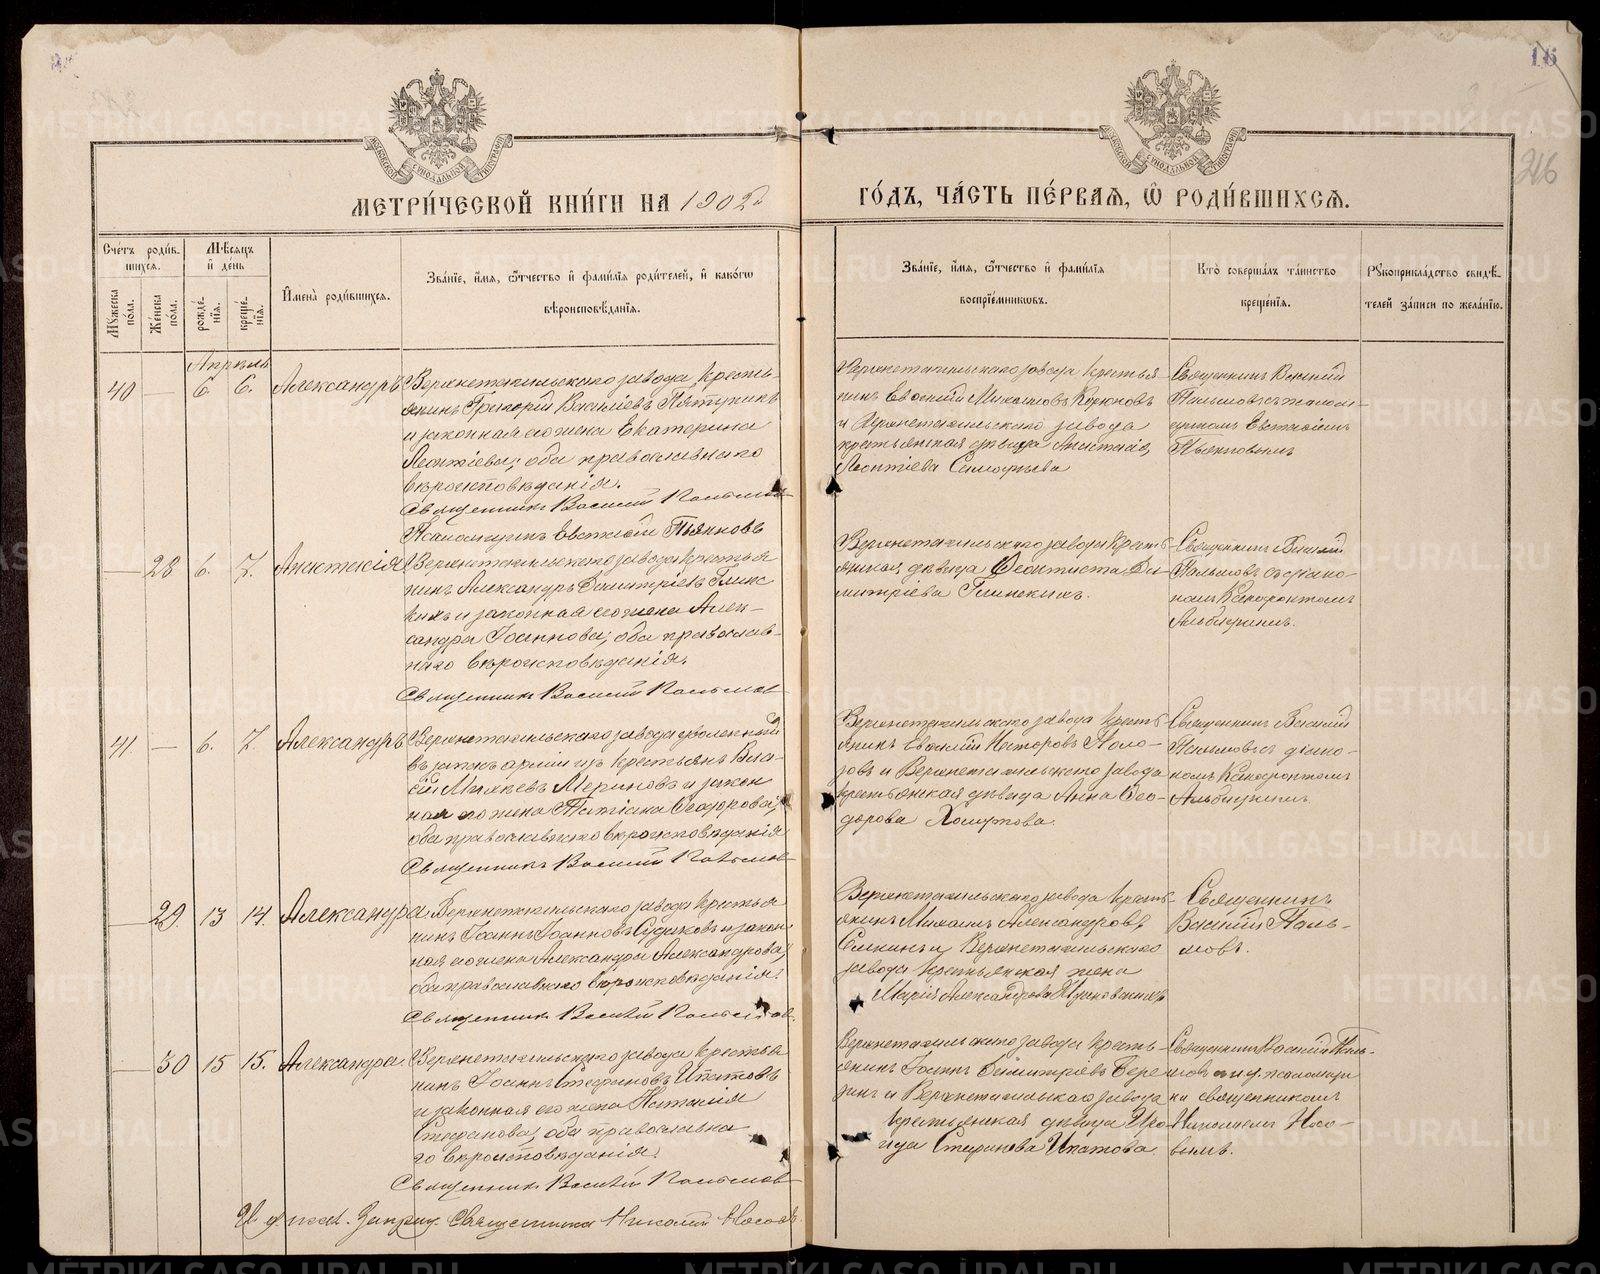 МЕТРИ́ЧЕСКОЙ КНИ́ГИ НА 1902й
ГО́ДЪ, ЧА́СТЬ ПЕ́РВАѦ, Ѿ РОДИ́ВШИХСѦ.
16
216
Сче́тъ роди́в-
шихсѧ.
Мꙋ́жеска пола.
Же́нска пола.
Мѣ́сѧцъ
и҆ де́нь
рожде́нїѧ.
креще́нїѧ.
И҆мена̀ роди́вшихсѧ.
Зва́нїе, и҆́мѧ, ѻ҆́тчество и҆ фами́лїѧ роди́телей, и҆ како́гѡ
вѣроисповѣ́данїѧ.
Зва́нїе, и҆́мѧ, ѻ҆́тчество и҆ фами́лїѧ
воспрїе́мникѡвъ.
Кто̀ соверша́лъ та́инство
креще́нїѧ.
Рꙋкоприкла́дство свидѣ́-
телей за́писи по жела́нїю.
Апрѣль
40 — 6. 6. Александръ
Верхнетагильскаго завода кресть-
янинъ Григорій Василіевъ Пятунинъ
и законная его жена Екатерина
Леонтіева; оба православнаго
вѣроисповѣданія.
Священникъ Василій Пальмовъ
Псаломщикъ Евстафій Пьянковъ
Верхнетагильскаго завода крестья-
нинъ Евсевій Михаиловъ
и Верхнетагильскаго завода
крестьянская дѣвица Анастасія
Леонтіева
Священникъ Василій
Пальмовъ съ псалом-
щикомъ Евстафіемъ
Пьянковымъ
— 28 6. 7. Анастасія
Верхнетагильскаго завода крестья
нинъ Александръ Димитріевъ Глинс
кихъ и законная его жена Алек-
сандра Іоаннова; оба православ-
наго вѣроисповѣданія.
Священникъ Василій Пальмовъ
Верхнетагильскаго завода кресть-
янская дѣвица Феоктиста Ди-
митріева Глинскихъ.
Священникъ Василій
Пальмовъ съ діако-
номъ Ксенофонтомъ
Альбицкимъ.
41 — 6. 7. Александръ
Верхнетагильскаго завода уволенный
въ запасъ арміи изъ крестьянъ Вла-
сій Михеевъ Мериновъ и закон
ная его жена Татіана Ѳеодорова;
оба православнаго вѣроисповѣданія
Священникъ Василій Пальмовъ
Верхнетагильскаго завода кресть
янинъ Евсевій Несторовъ Поло-
зовъ и Верхнетагильскаго завода
крестьянская дѣвица Анна Ѳео-
дорова Хомутова.
Священникъ Василій
Пальмовъ съ діако-
номъ Ксенофонтомъ
Альбицкимъ.
— 29. 13 14. Александра
Верхнетагильскаго завода крестья
нинъ Іоаннъ Іоанновъ Судаковъ и закон
ная его жена Александра Александрова;
оба православнаго вѣроисповѣданія.
Священникъ Василій Пальмовъ.
Верхнетагильскаго завода кресть-
янинъ Михаилъ Александровъ
и Верхнетагильскаго
завода крестьянская жена
Марія Александрова
Священникъ
Василій Паль-
мовъ.
— 30 15 15. Александра.
Верхнетагильскаго завода крестья
нинъ Іоаннъ Стефановъ Ипатовъ
и законная его жена Наталія
Стефанова; оба православна
го вѣроисповѣданія.
Священникъ Василій Пальмовъ
И. д. псал. запрещ. священника Николай Носовъ.
Верхнетагильскаго завода кресть-
янинъ Іоаннъ Димитріевъ Бере
зинъ и Верхнетагильскаго завода
крестьянская дѣвица Ира-
ида Стефанова Ипатова.
Священникъ Василій Паль-
мовъ и и. д. псаломщи
ка священникомъ
Николаемъ Носо-
вымъ.
METRIKI.GASO-URAL.RU